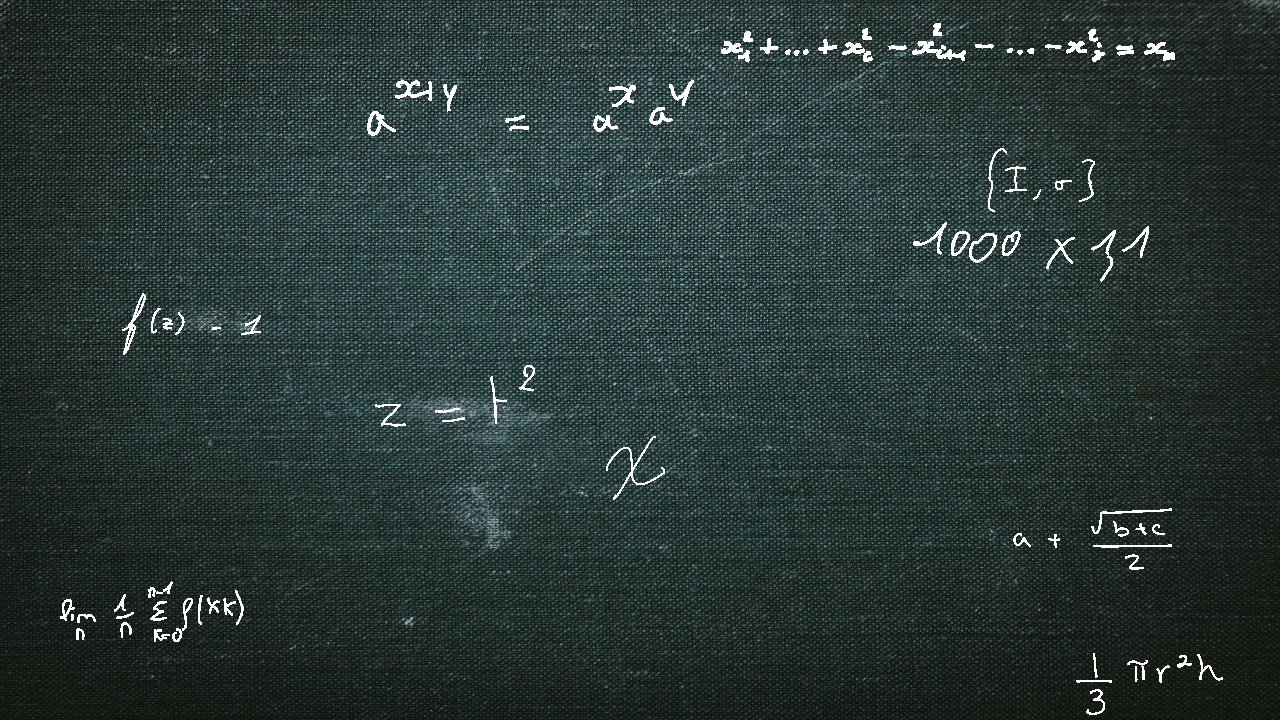 x₁² + ... + x_i² − x_{i+1}² − ... − x_j² = x_n
a^{x+y} = a^x a^y
{I, σ}
1000 × 31
f(z) - 1
z = t²
x
a + \frac{\sqrt{b+c}}{2}
lim_n \frac{1}{n} Σ_{k=0}^{n-1} f(xk)
\frac{1}{3} πr²h